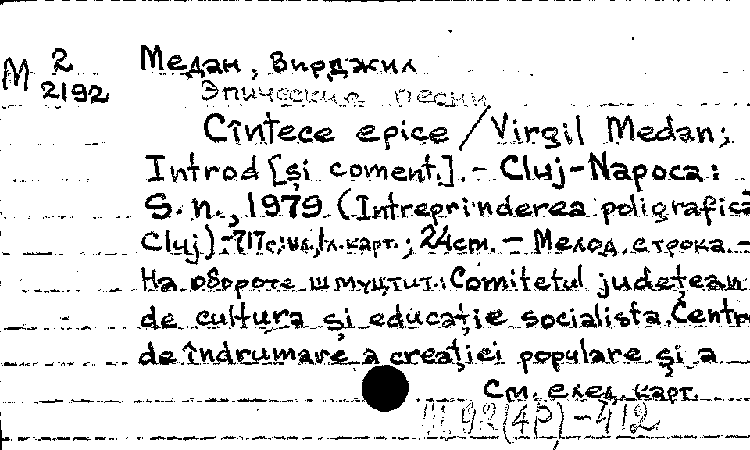 М 2
2192
Медан, Вирджил
Эпические песни
Cîntece epice / Virgil Medan;
Introd [și coment.]. – Cluj-Napoca:
S. n., 1979 (Intreprinderea poligrafică
Cluj). – 717 с.: ил., 1 л. карт.; 24 cm. – Мелод. строка. –
На обороте шмуцтит.: Comitetul județean
de cultura și educație socialista. Centr
de îndrumare a creației populare și a
См. след. карт.
92(4Р)-412